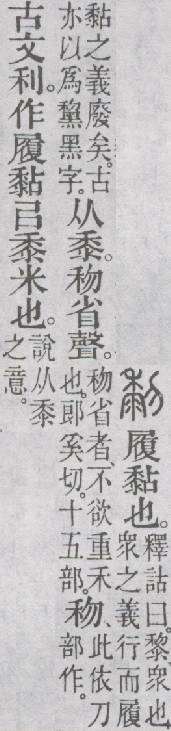 黎履黏也。
釋詁曰。黎、衆也。
衆之義行而履
黏之義廢矣。古
亦以爲黧黑字。
从黍。𥝢省聲。
𥝢省者、不欲重禾
也。郎奚切。十五部。
𥝢、
此依刀
部作。
古文利。作履黏㠯黍米也。
說从黍
之意。